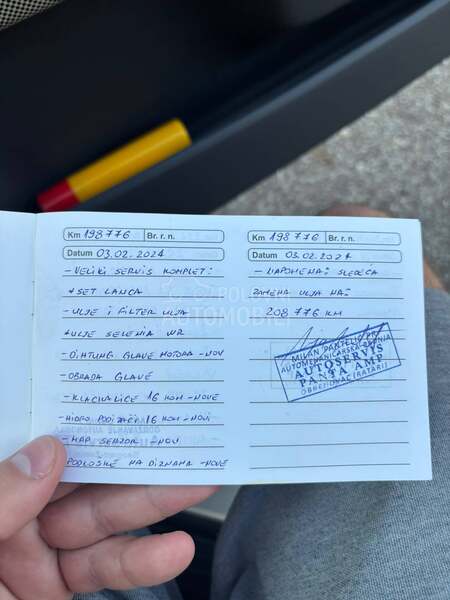 Km 198776 Br. r. n.
Datum 03.02.2024
- VELIKI SERVIS KOMPLET:
+ SET LANCA
- ULJE I FILTER ULJA
+ ULJE SELENIA WR
- DIHTUNG GLAVE MOTORA - NOV
- OBRADA GLAVE
- KLACKALICE 16 KOM - NOVE
- HIDRO PODIZAČI 16 KOM - NOVI
- MAP SENZOR - NOV
- PODLOŠKE NA DIZNAMA - NOVE
Km 198776 Br. r. n.
Datum 03.02.2024
- NAPOMENA: SLEDEĆA
ZAMENA ULJA NA:
208 776 KM
MILAN PANTELIĆ PR
AUTOMEHANIČARSKA RADNJA
AUTOSERVIS
PANTA AMP
OBRENOVAC (RATARI)
POLOVNI
AUTOMOBILI